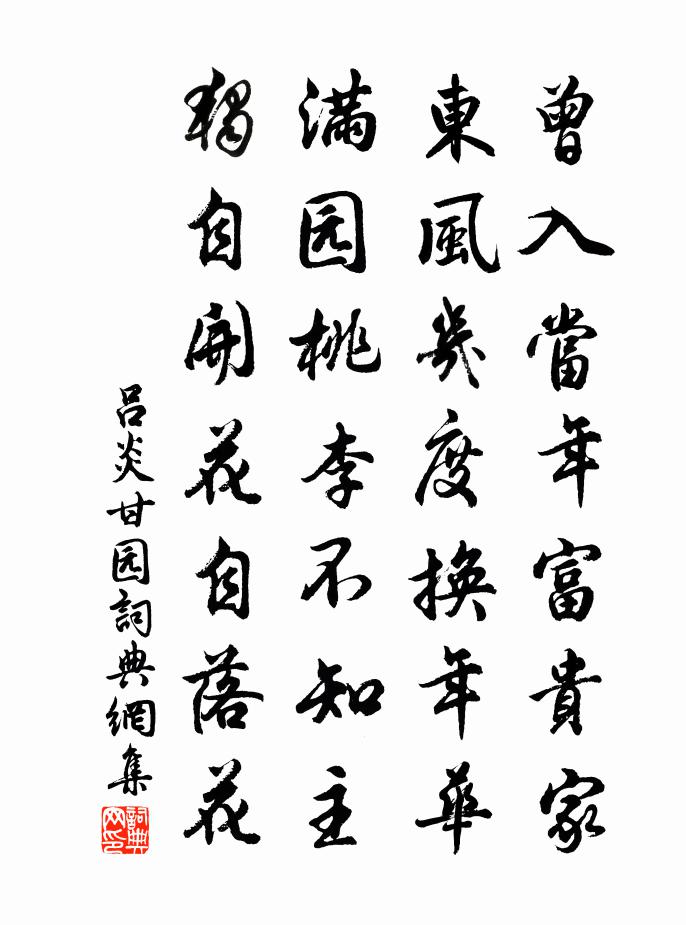 曾入當年富貴家
東風幾度換年華
滿园桃李不知主
獨自開花自落花
吕炎甘园詞典網集
詞典网印